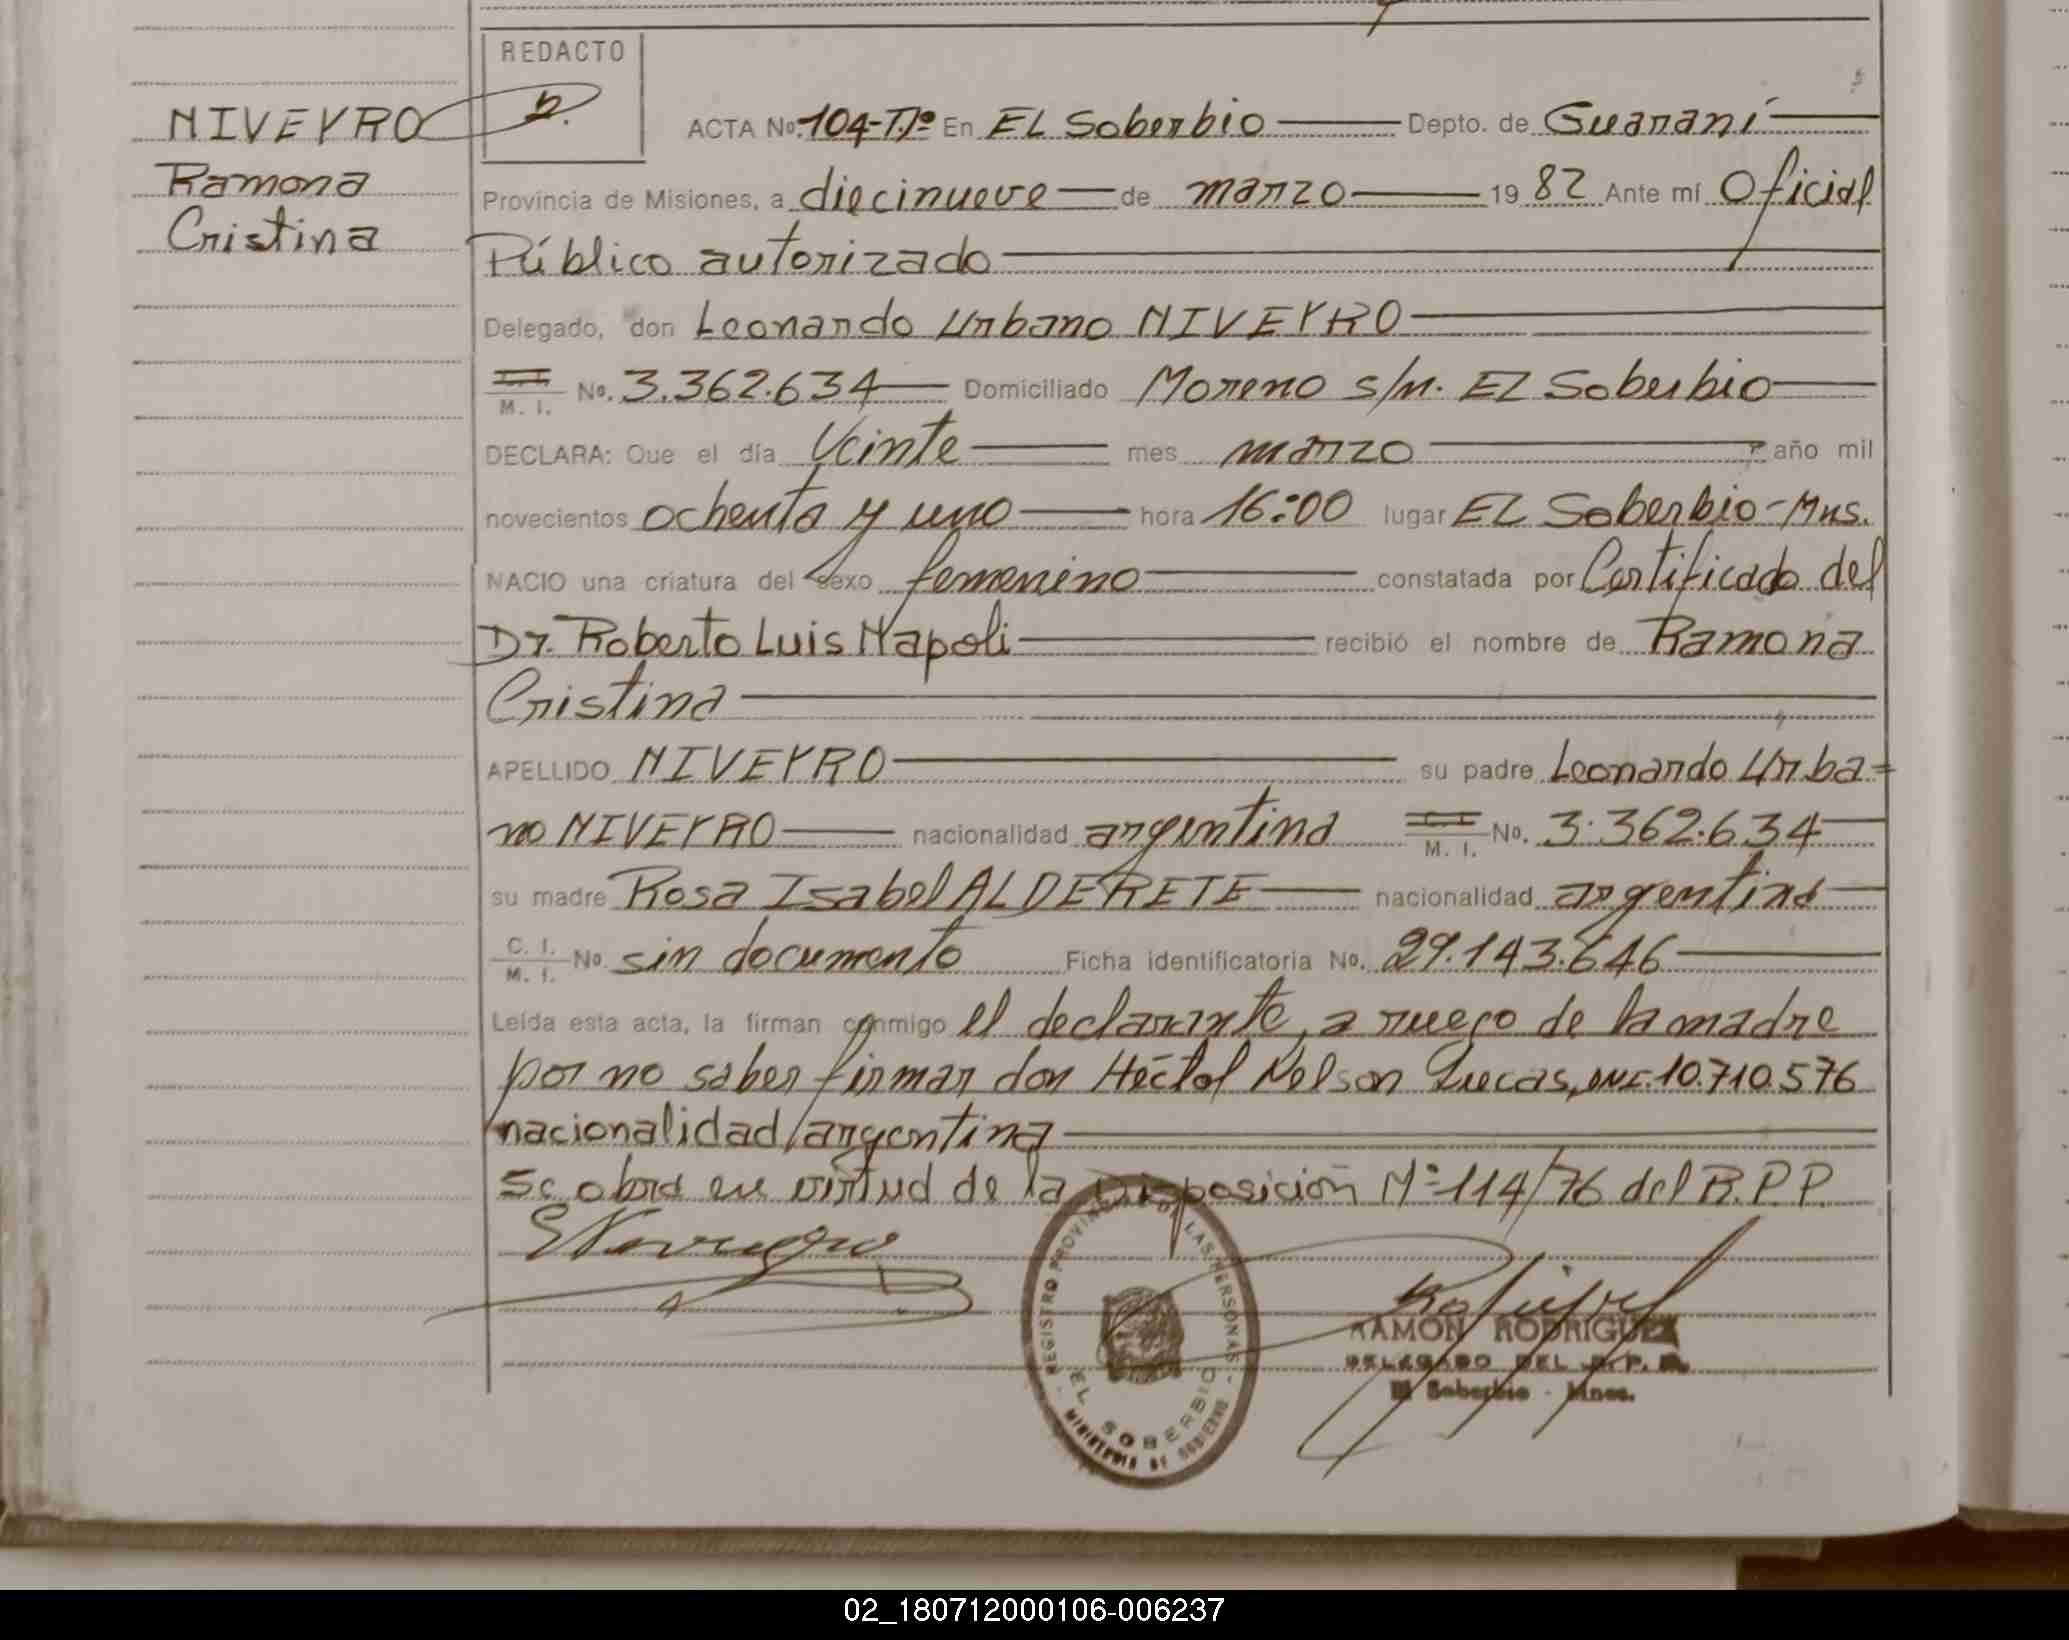 REDACTO
NIVEYRO
Ramona
Cristina
ACTA No. 104-Tº En EL Soberbio Depto. de Guaraní
Provincia de Misiones, a diecinueve de marzo 19 82 Ante mí Oficial
Público autorizado
Delegado, don Leonardo Urbano NIVEYRO
M. I. No. 3.362.634 Domiciliado Moreno s/n. EL Soberbio
DECLARA: Que el día Veinte mes marzo año mil
novecientos ochenta y uno hora 16:00 lugar EL Soberbio-Mns.
NACIO una criatura del sexo femenino constatada por Certificado del
Dr. Roberto Luis Napoli recibió el nombre de Ramona
Cristina
APELLIDO NIVEYRO su padre Leonardo Urba=
no NIVEYRO nacionalidad argentina M. I. No. 3.362.634
su madre Rosa Isabel ALDERETE nacionalidad argentina
C. I. M. I. No. sin documento Ficha identificatoria No. 29.143.646
Leída esta acta, la firman conmigo el declarante, a ruego de la madre
por no saber firmar don Héctor Nelson Lucas, DNI. 10.710.576
nacionalidad argentina
Se obra en virtud de la Disposición Nº 114/76 del R.P.P.
REGISTRO PROVINCIAL DE LAS PERSONAS
EL SOBERBIO
MINISTERIO DE GOBIERNO
RAMON RODRIGUEZ
DELEGADO DEL R. P. P.
El Soberbio - Mnes.
02_180712000106-006237